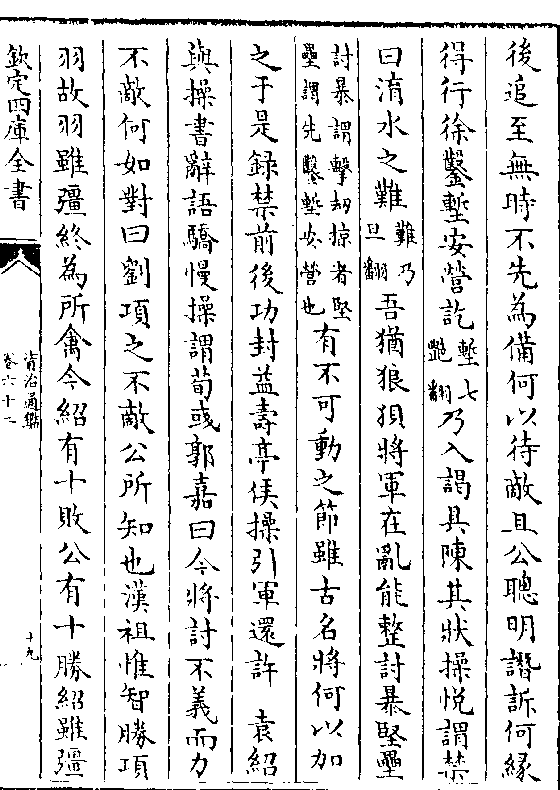 後追至無時不先為備何以待敵且公聰明譖訴何縁
得行徐鑿塹安營訖塹七艷翻乃入謁具陳其狀操悦謂禁
曰淯水之難難乃旦翻吾猶狼狽將軍在亂能整討暴堅壘
討暴謂擊刼掠者堅壘謂先鑿塹安營也有不可動之節雖古名將何以加
之于是録禁前後功封益壽亭侯操引軍還許　袁紹
與操書辭語驕慢操謂荀彧郭嘉曰今將討不義而力
不敵何如對曰劉項之不敵公所知也漢祖惟智勝項
羽故羽雖彊終為所禽今紹有十敗公有十勝紹雖彊
欽定四庫全書
資治通鑑
卷六十二
十九